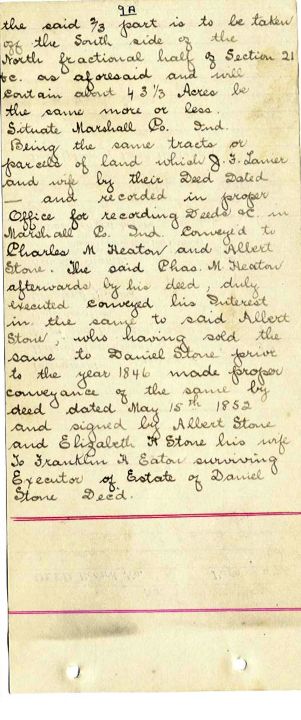 9A
the said 2/3 part is to be taken
off the South side of the
North fractional half of Section 21
&c. as aforesaid and will
contain about 43 1/3 Acres be
the same more or less.
Situate Marshall Co. Ind.
Being the same tracts or
parcels of land which J. F. Lamer
and wife by their Deed Dated
— and recorded in proper
Office for recording Deeds &c. in
Marshall Co. Ind. Conveyed to
Charles M Heaton and Albert
Stone. The said Chas. M Heaton
afterwards by his deed, duly
executed conveyed his Interest
in the same to said Albert
Stone, who having sold the
same to Daniel Stone prior
to the year 1846 made proper
conveyance of the same by
deed dated May 15th 1852
and signed by Albert Stone
and Elizabeth A Stone his wife
To Franklin A Eaton surviving
Executor of Estate of Daniel
Stone Decd.